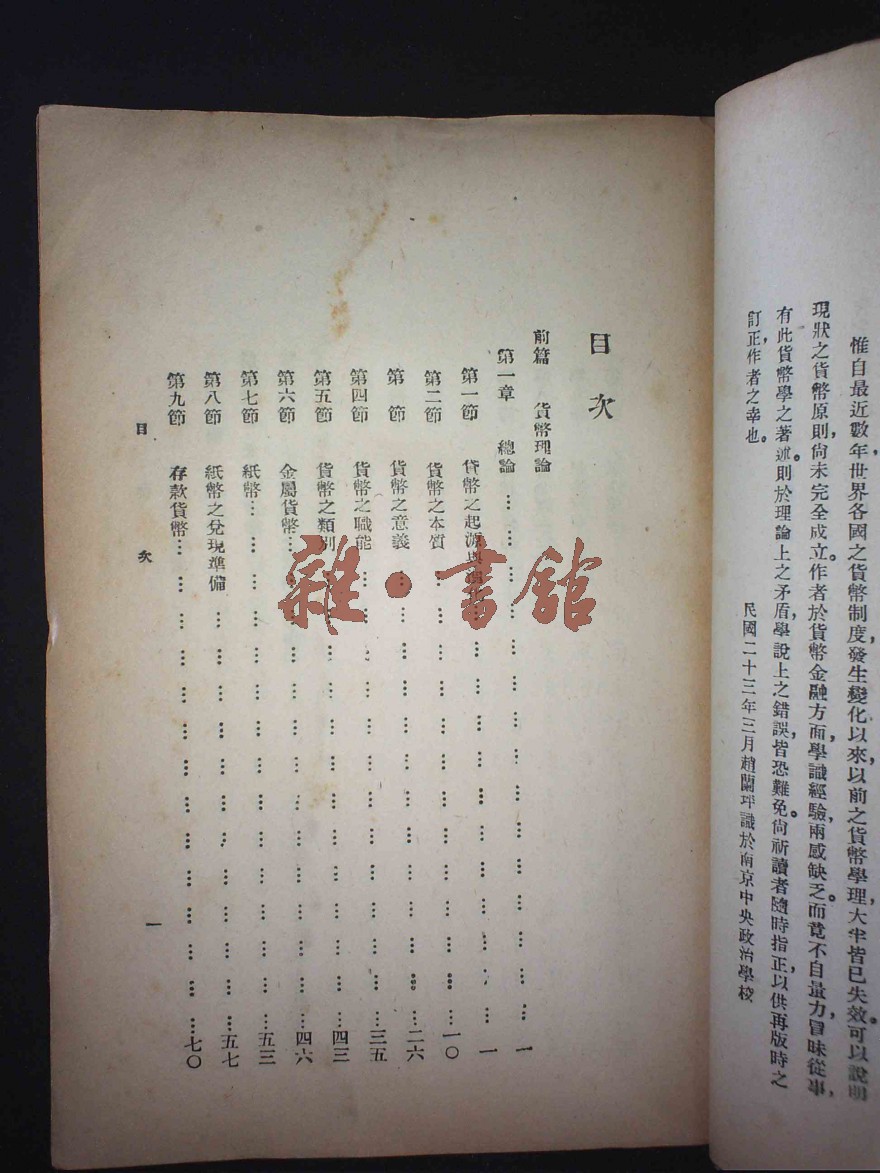 惟自最近數年世界各國之貨幣制度，發生變化以來，以前之貨幣學理，大半皆已失效。可以說明
現狀之貨幣原則，尙未完全成立。作者於貨幣金融方面，學識經驗，兩感缺乏。而竟不自量力，冒昧從事，
有此貨幣學之著述。則於理論上之矛盾，學說上之錯誤，皆恐難免。尙祈讀者隨時指正，以供再版時之
訂正，作者之幸也。
民國二十三年三月趙蘭坪識於南京中央政治學校
目次
前篇 貨幣理論
第一章 總論 … … … … … … … … … … … … … … 一
第一節 貨幣之起源與 … … … … … … … … … … … 一
第二節 貨幣之本質 … … … … … … … … … … … … 一〇
第 節 貨幣之意義 … … … … … … … … … … … … 二六
第四節 貨幣之職能 … … … … … … … … … … … … 三五
第五節 貨幣之類別 … … … … … … … … … … … … 四三
第六節 金屬貨幣 … … … … … … … … … … … … … 四六
第七節 紙幣 … … … … … … … … … … … … … … 五三
第八節 紙幣之兌現準備 … … … … … … … … … … … 五七
第九節 存款貨幣 … … … … … … … … … … … … … 七〇
目 次
一
雜·書館